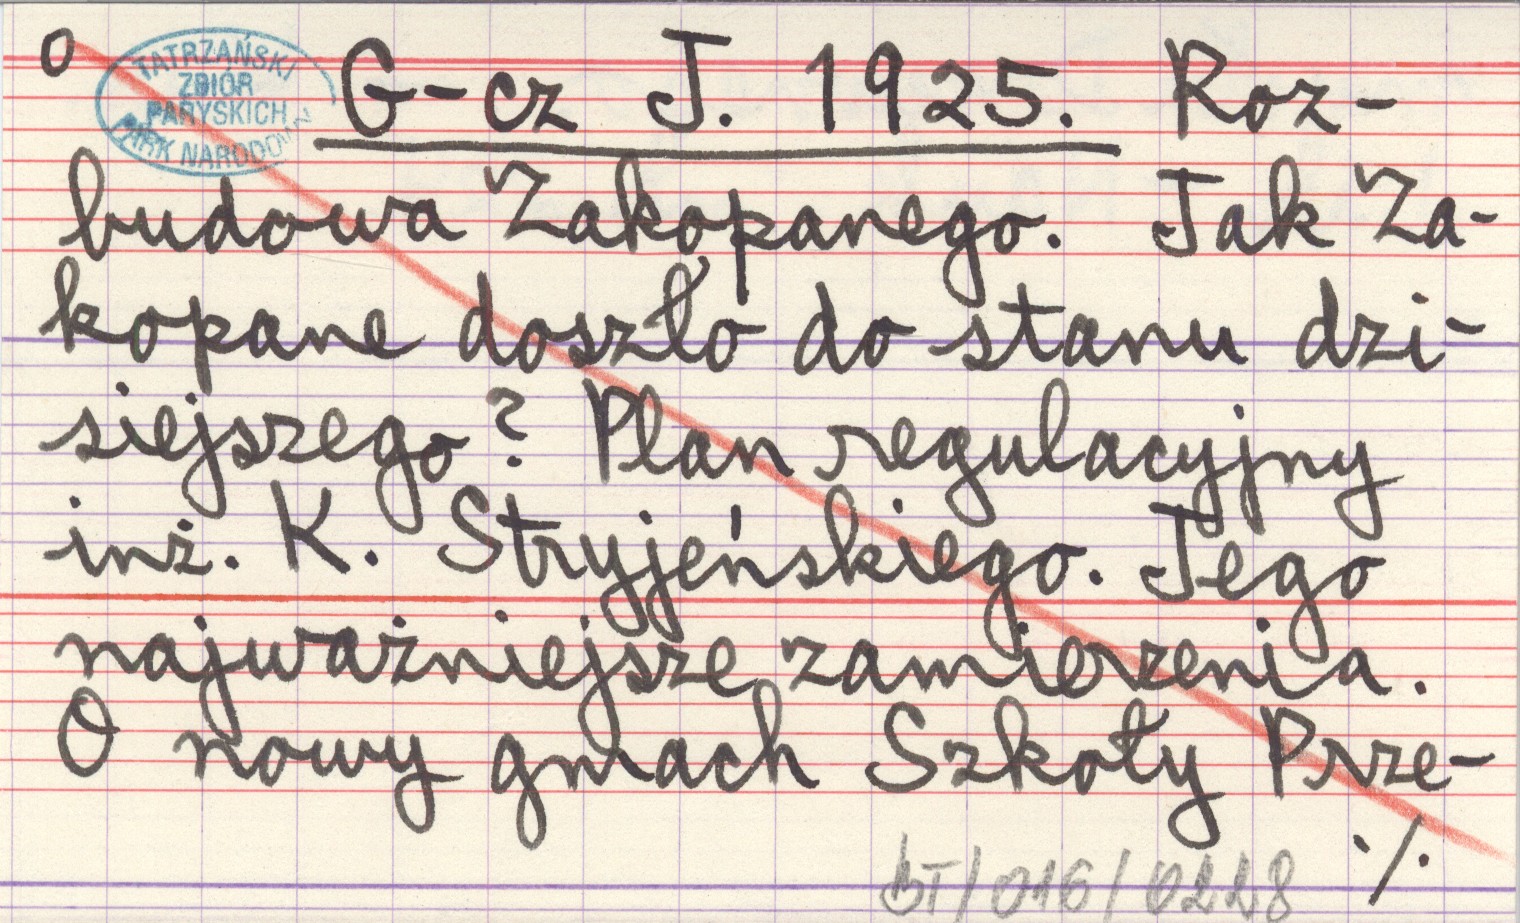 o
TATRZAŃSKI
ZBIÓR
PARYSKICH
PARK NARODOWY
G-cz J. 1925. Roz-
budowa Zakopanego. Jak Za-
kopane doszło do stanu dzi-
siejszego? Plan regulacyjny
inż. K. Stryjeńskiego. Jego
najważniejsze zamierzenia.
O nowy gmach Szkoły Prze-
./.
BT/016/0228